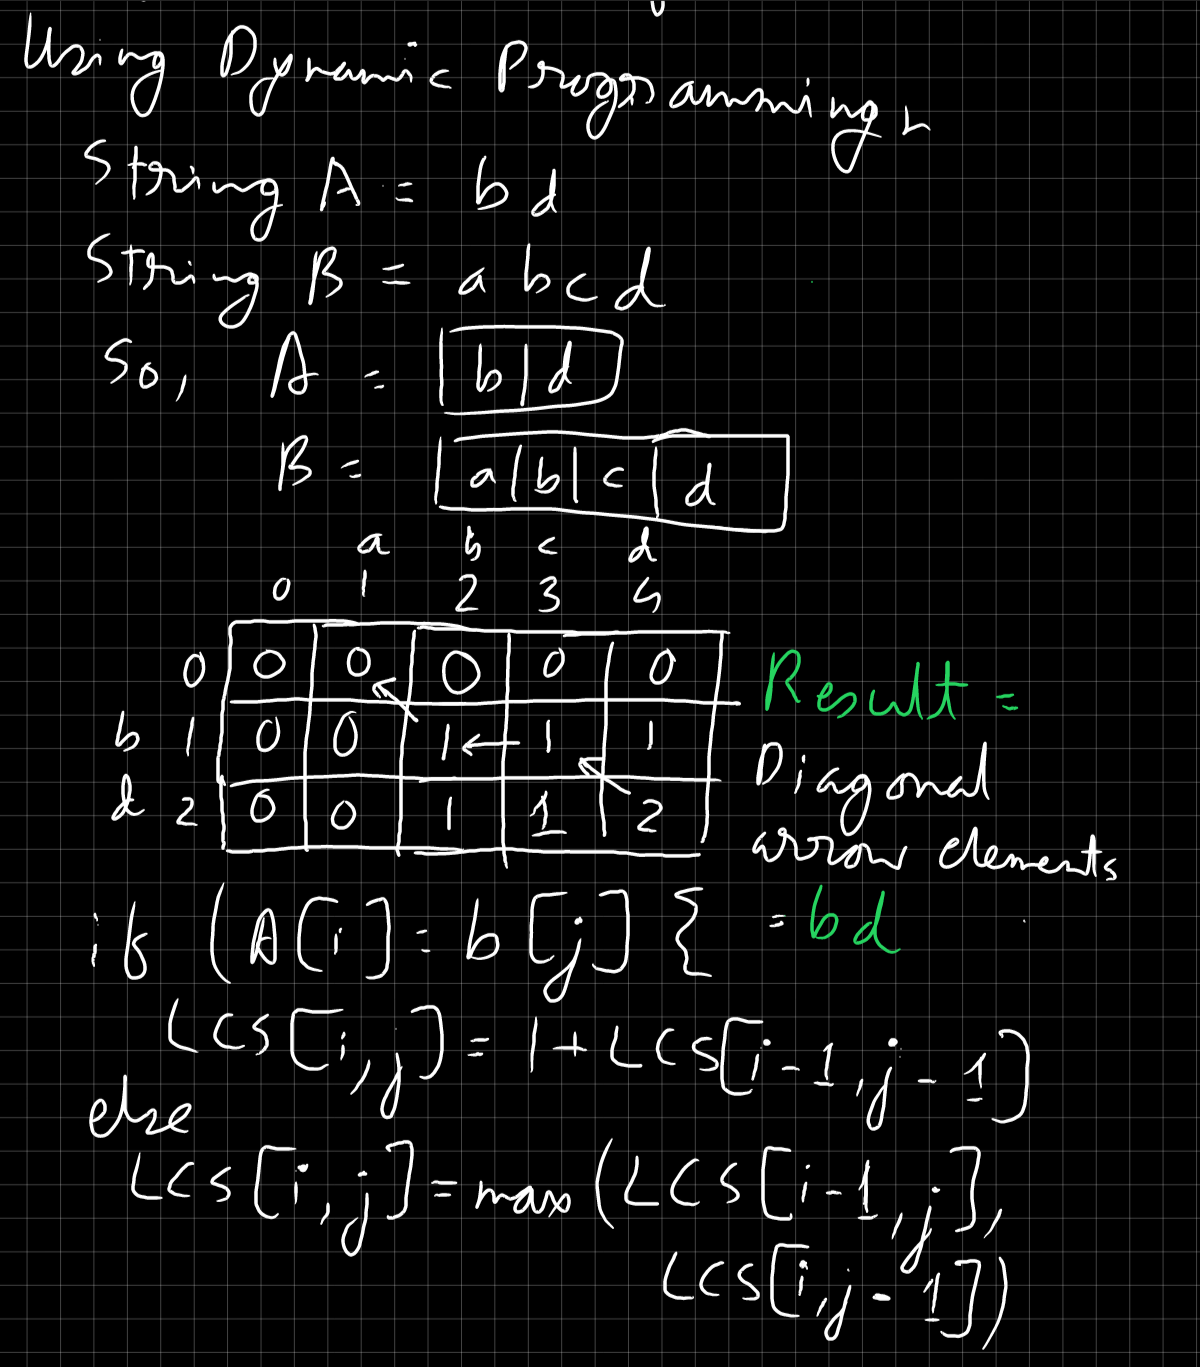 Using Dynamic Programming,
String A = bd
String B = abcd
So, A = b|d
B = a|b|c|d
a b c d
0 1 2 3 4
0 0 0 0 0 0
b 1 0 0 1 1 1
d 2 0 0 1 1 2
Result =
Diagonal
arrow elements
= bd
if (A[i] = b[j] {
LCS[i,j] = 1 + LCS[i-1,j-1]
else
LCS[i,j] = max(LCS[i-1,j],
LCS[i,j-1])